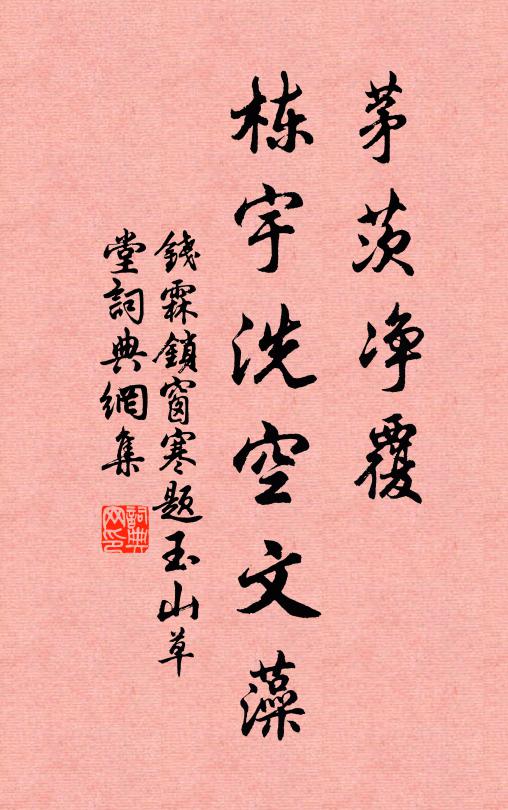 茅茨净覆
栋宇洗空文藻
錢霖鎖窗寒题玉山草
堂詞典網集
詞典
网印